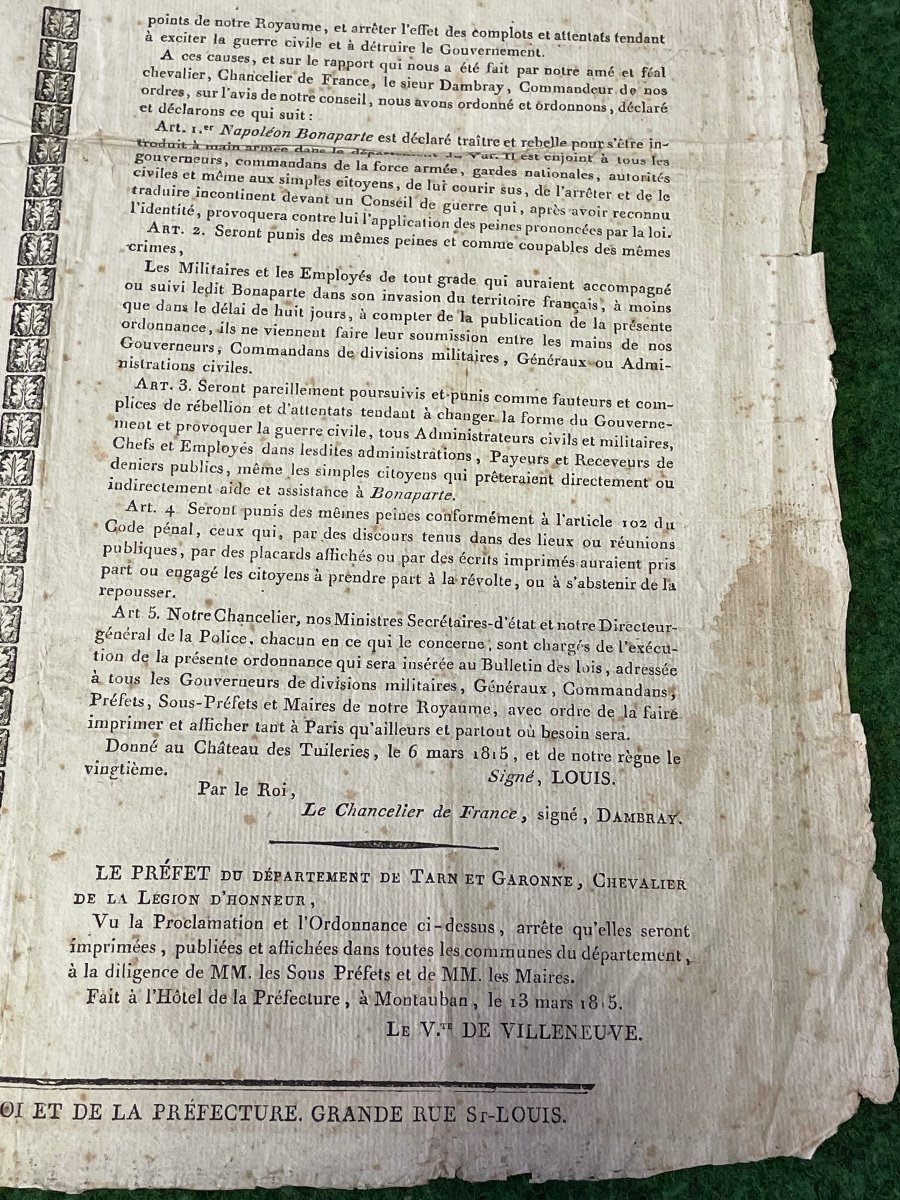 points de notre Royaume, et arrêter l'effet des complots et attentats tendant
à exciter la guerre civile et à détruire le Gouvernement.
A ces causes, et sur le rapport qui nous a été fait par notre amé et féal
chevalier, Chancelier de France, le sieur Dambray, Commandeur de nos
ordres, sur l'avis de notre conseil, nous avons ordonné et ordonnons, déclaré
et déclarons ce qui suit :
Art. 1.er Napoléon Bonaparte est déclaré traître et rebelle pour s'être in-
troduit à main armée dans le département du Var. Il est enjoint à tous les
gouverneurs, commandans de la force armée, gardes nationales, autorités
civiles et même aux simples citoyens, de lui courir sus, de l'arrêter et de le
traduire incontinent devant un Conseil de guerre qui, après avoir reconnu
l'identité, provoquera contre lui l'application des peines prononcées par la loi.
ART. 2. Seront punis des mêmes peines et comme coupables des mêmes
crimes,
Les Militaires et les Employés de tout grade qui auraient accompagné
ou suivi ledit Bonaparte dans son invasion du territoire français, à moins
que dans le délai de huit jours, à compter de la publication de la présente
ordonnance, ils ne viennent faire leur soumission entre les mains de nos
Gouverneurs, Commandans de divisions militaires, Généraux ou Admi-
nistrations civiles.
ART. 3. Seront pareillement poursuivis et punis comme fauteurs et com-
plices de rébellion et d'attentats tendant à changer la forme du Gouverne-
ment et provoquer la guerre civile, tous Administrateurs civils et militaires,
Chefs et Employés dans lesdites administrations, Payeurs et Receveurs de
deniers publics, même les simples citoyens qui prêteraient directement ou
indirectement aide et assistance à Bonaparte.
Art. 4. Seront punis des mêmes peines conformément à l'article 102 du
Code pénal, ceux qui, par des discours tenus dans des lieux ou réunions
publiques, par des placards affichés ou par des écrits imprimés auraient pris
part ou engagé les citoyens à prendre part à la révolte, ou à s'abstenir de la
repousser.
Art 5. Notre Chancelier, nos Ministres Secrétaires-d'état et notre Directeur-
général de la Police, chacun en ce qui le concerne, sont chargés de l'exécu-
tion de la présente ordonnance qui sera insérée au Bulletin des lois, adressée
à tous les Gouverneurs de divisions militaires, Généraux, Commandans,
Préfets, Sous-Préfets et Maires de notre Royaume, avec ordre de la faire
imprimer et afficher tant à Paris qu'ailleurs et partout où besoin sera.
Donné au Château des Tuileries, le 6 mars 1815, et de notre règne le
vingtième. Signé, LOUIS.
Par le Roi,
Le Chancelier de France, signé, DAMBRAY.
LE PRÉFET DU DÉPARTEMENT DE TARN ET GARONNE, CHEVALIER
DE LA LÉGION D'HONNEUR,
Vu la Proclamation et l'Ordonnance ci-dessus, arrête qu'elles seront
imprimées, publiées et affichées dans toutes les communes du département,
à la diligence de MM. les Sous Préfets et de MM. les Maires.
Fait à l'Hôtel de la Préfecture, à Montauban, le 13 mars 1815.
LE V.TE DE VILLENEUVE.
OI ET DE LA PRÉFECTURE, GRANDE RUE ST-LOUIS.